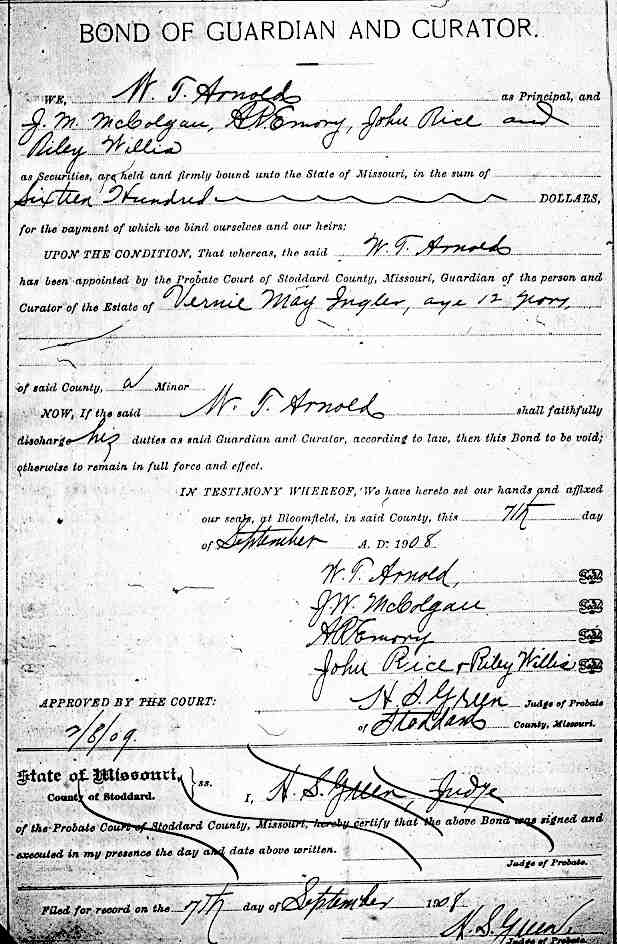 BOND OF GUARDIAN AND CURATOR.
WE, W. T. Arnold as Principal, and
J. M. McColgan, A R Emory, John Rice and
Riley Willis
as Securities, are held and firmly bound unto the State of Missouri, in the sum of
Sixteen Hundred DOLLARS,
for the payment of which we bind ourselves and our heirs;
UPON THE CONDITION, That whereas, the said W. T. Arnold
has been appointed by the Probate Court of Stoddard County, Missouri, Guardian of the person and
Curator of the Estate of Vernie May Ingler, age 12 years,
of said County, a Minor
NOW, If the said W. T. Arnold shall faithfully
discharge his duties as said Guardian and Curator, according to law, then this Bond to be void;
otherwise to remain in full force and effect.
IN TESTIMONY WHEREOF, We have hereto set our hands and affixed
our seals, at Bloomfield, in said County, this 7th day
of September A. D. 1908
W. T. Arnold, Seal
J W. McColgan Seal
A R Emory Seal
John Rice & Riley Willis Seal
APPROVED BY THE COURT: H. S. Green Judge of Probate
of Stoddard County, Missouri.
2/8/09.
State of Missouri, } ss.
County of Stoddard. I, H. S. Green, Judge
of the Probate Court of Stoddard County, Missouri, hereby certify that the above Bond was signed and
executed in my presence the day and date above written.
Judge of Probate.
Filed for record on the 7th day of September 1908
H. S. Green,
Judge of Probate.